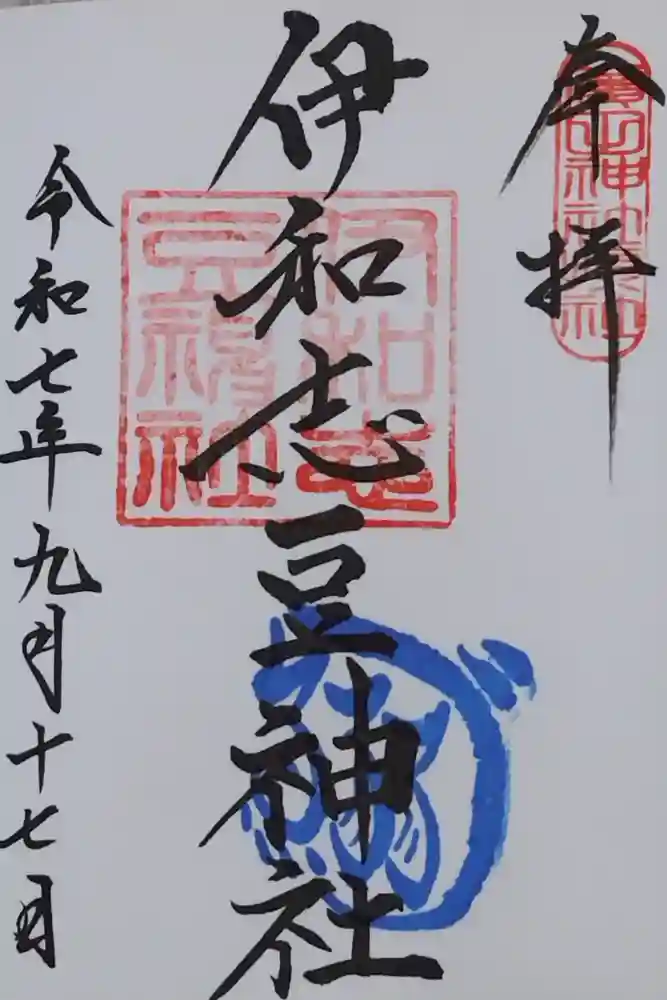 奉拝
伊和志豆神社
令和七年九月十七日